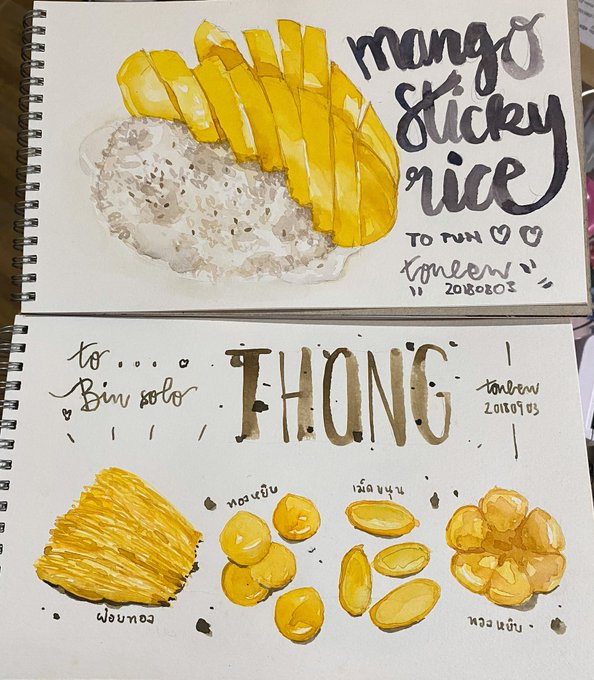 mango
sticky
rice
TO PUN
20180803
to . . . .
Bin solo
THONG
20180903
ทองหยิบ
เม็ดขนุน
ฝอยทอง
ทองหยิบ